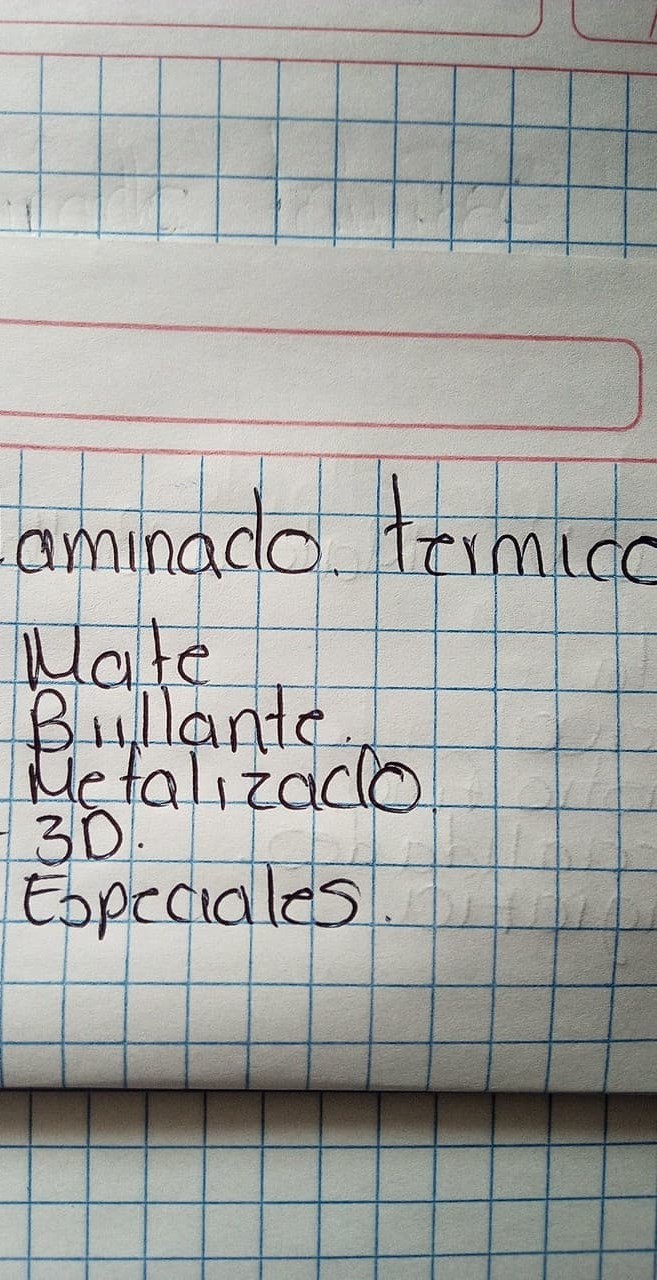 aminado. termico
Mate
Brillante.
Metalizado.
- 3D.
Especiales.